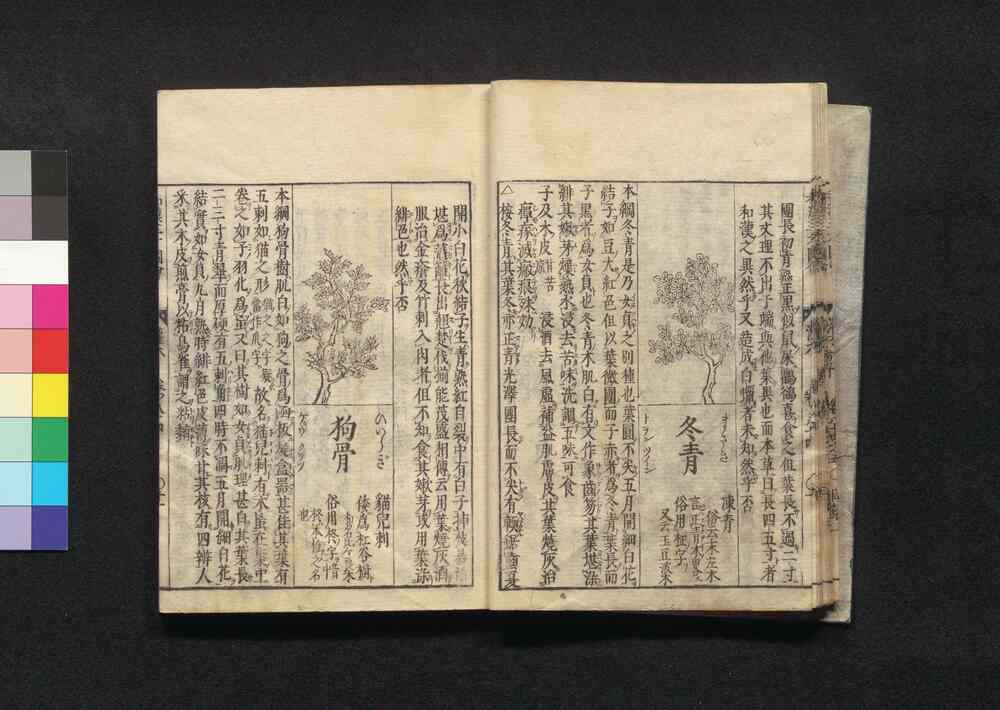 團長初青熟正黒似鼠屎鸜鵒喜食之但葉長不過二寸
其文理不出于端與他葉異也而本草曰長四五寸者
和漢之異然乎又造成白蠟者未知然乎否
冬青
トヲン ツイン
凍青
俗云末左木
俗用柾字
本綱冬青是乃女貞之別種也葉圓不尖五月開細白花
結子如豆大紅色但以葉微團而子赤者爲冬青葉長而
子黒者爲女貞也冬青木肌白有文作象齒笏其葉堪染
緋其嫩芽煠熟水浸去苦味洗淘五味可食
子及木皮 甘苦 浸酒去風虛補益肌膚皮其葉燒灰治
瘴瘃滅瘢痕殊効
△ 桉冬青其葉冬亦正青光澤團長而不尖有
開小白花秋結子生青熟紅自裂中有白子
堪爲籬籠長出翹楚伐揃能茂盛相傳云用葉燒灰酒
服治金瘡及竹刺入肉者但不知食其嫩芽及用葉染
緋色也然乎否
狗骨
ひいらぎ
貓兒刺
俗用柊字
本綱狗骨樹肌白如狗之骨爲函板旋盒器甚佳其葉有
五刺如猫之形 故名猫兒刺有木虽在葉中
卷之如子羽化爲虽又曰其樹如女貞肌理甚白其葉長
二三寸青翠而厚硬有五刺角四時不凋五月開細白花
結實如女貞九月熟時緋紅色皮薄味甘其核有四瓣人
采其木皮煎膏以粘鳥雀謂之粘黐